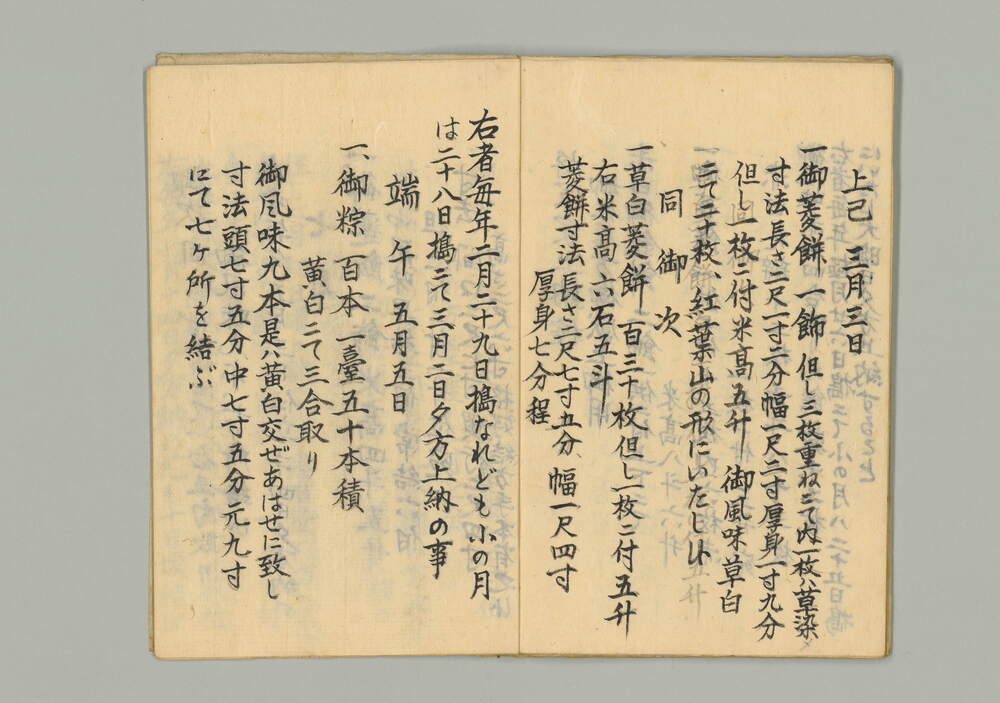 上巳　三月三日
一御菱餅　一飾　但し三枚重ねニて内一枚ハ草染〆
寸法長さ二尺一寸二分幅一尺二寸厚身一寸九分
但し一枚ニ付米高五升　御風味草白
ニて二十枚ハ紅葉山の形にいたし候
同　御　次
一草白菱餅　百三十枚但し一枚ニ付五升
右米高六石五斗
菱餅寸法長さ二尺七寸五分、幅一尺四寸
厚身七分程
右者毎年二月二十九日搗なれども小の月
は二十八日搗ニて三月二日夕方上納の事
端　午　五月五日
一、御粽　百本　一臺五十本積
黄白ニて三合取り
御風味九本是ハ黄白交ぜあはせに致し
寸法頭七寸五分中七寸五分元九寸
にて七ヶ所を結ぶ